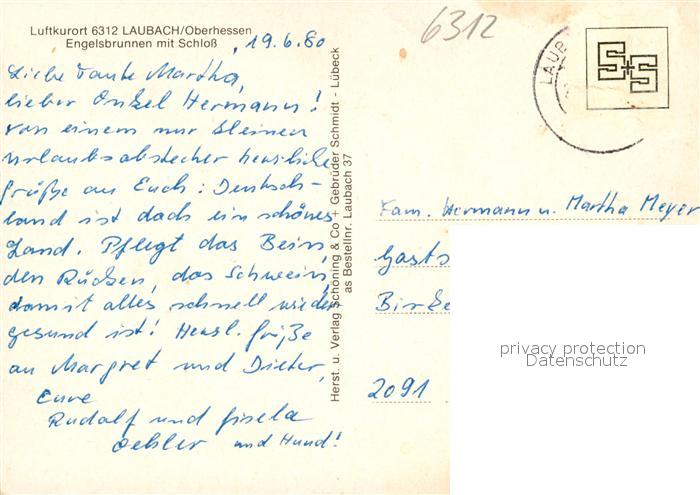 Luftkurort 6312 LAUBACH/Oberhessen
Engelsbrunnen mit Schloß
, 19.6.80
Liebe Tante Martha,
lieber Onkel Hermann!
von einem nur kleinen
Urlaubsabstecher herzliche
Grüße an Euch: Deutsch-
land ist doch ein schönes
Land. Pflegt das Bein,
den Rücken, das Schwein,
damit alles schnell wieder
gesund ist! Herzl. Grüße
an Margret und Dieter,
Eure
Rudolf und Gisela
und Hund!
Herst. u. Verlag Schöning & Co + Gebrüder Schmidt - Lübeck
as Bestellnr. Laubach 37
6312
LAUB
S+S
Fam. Hermann u. Martha Meyer
Gasts
Birke
2091
privacy protection
Datenschutz